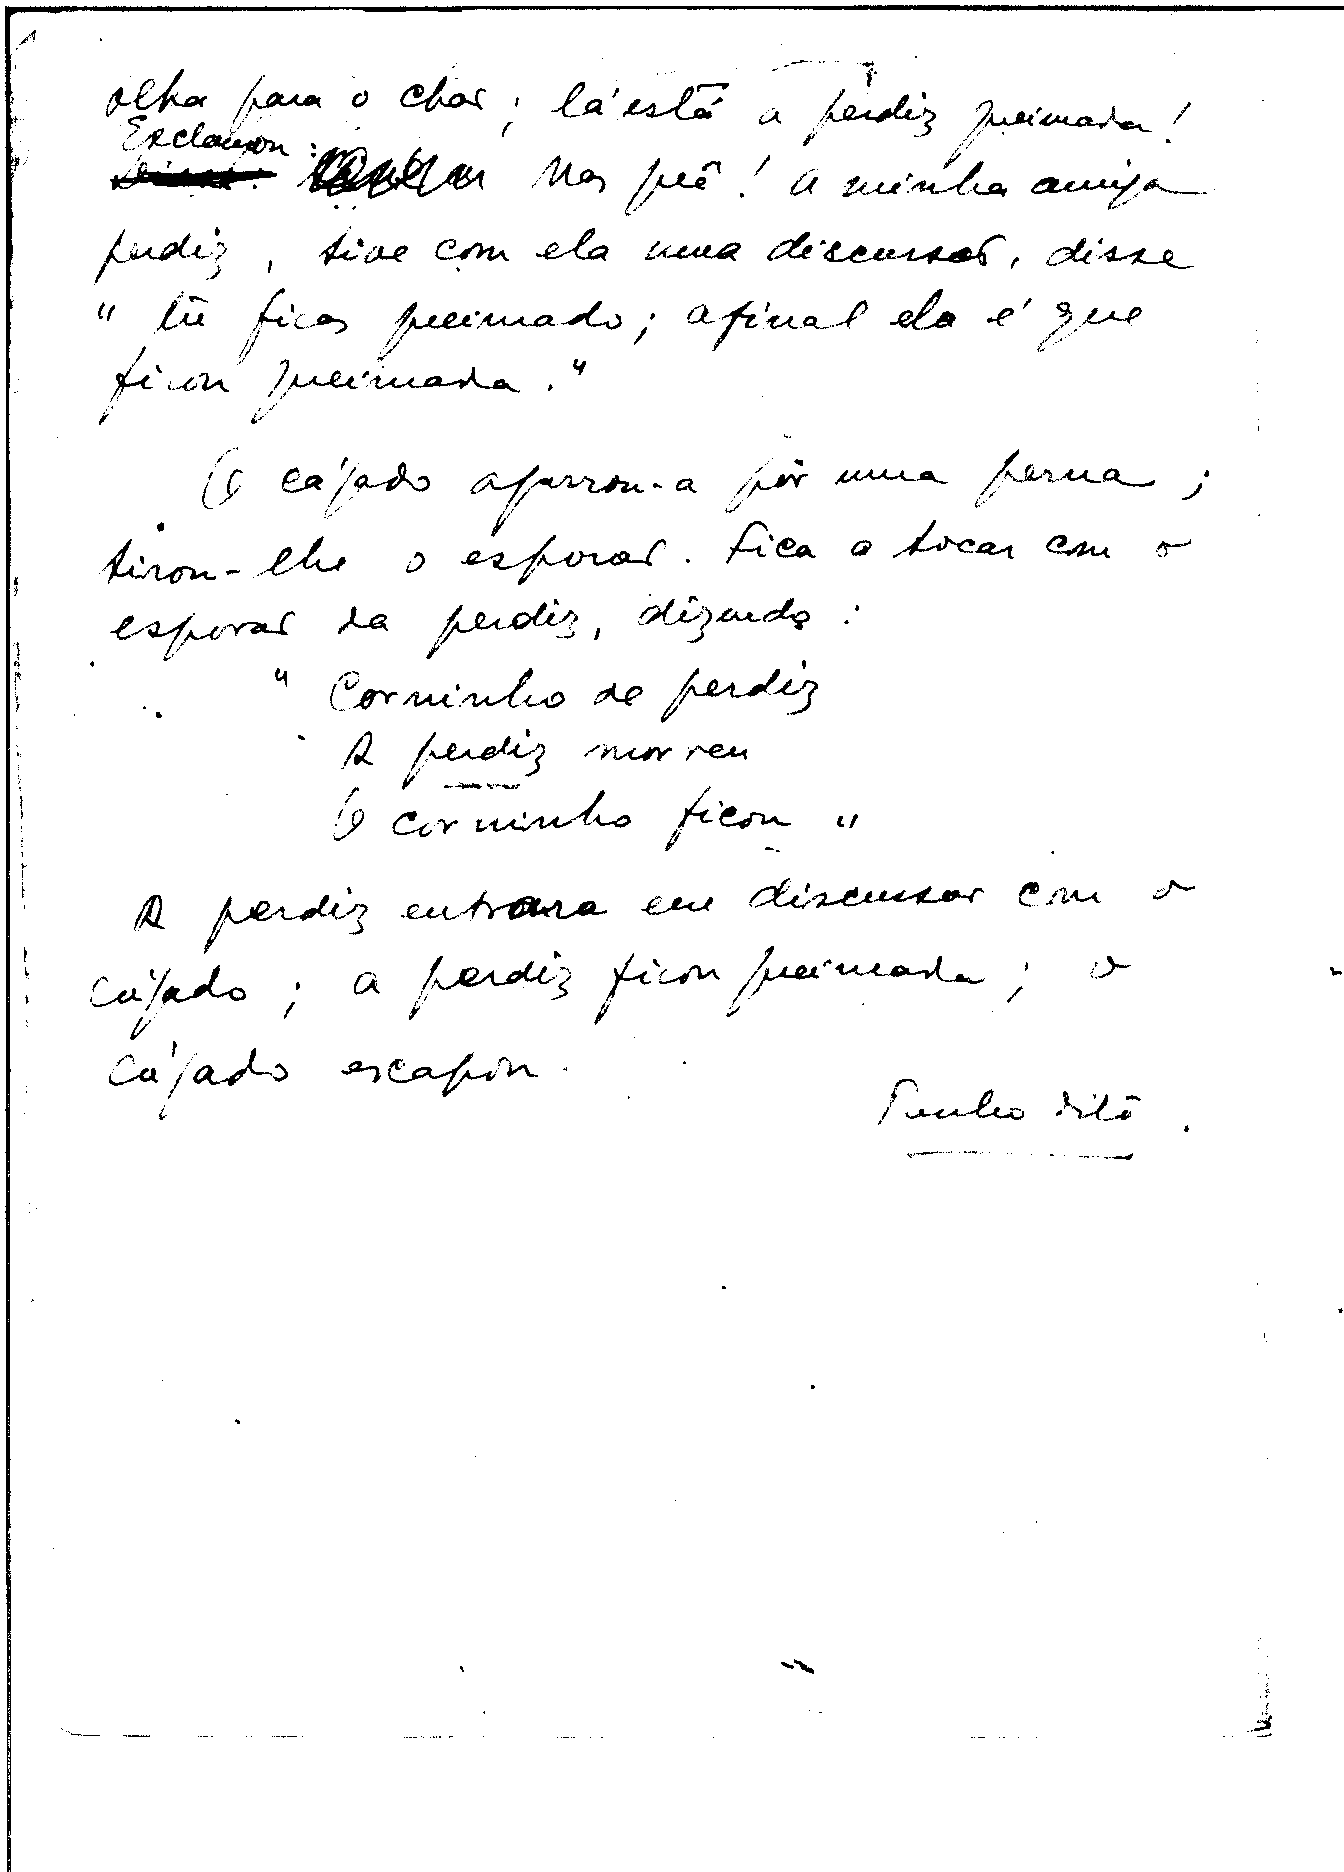 olha para o chão; lá está a perdiz queimada!
Exclamou:
Mas quê! A minha amiga
perdiz, tive com ela uma discussão, disse
"tu ficas queimado; afinal ela é que
ficou queimada."
O cágado agarrou-a por uma perna;
tirou-lhe o esporão. Fica a tocar com o
esporão da perdiz, dizendo:
"Corninho de perdiz
A perdiz morreu
O corninho ficou"
A perdiz entrara em discussão com o
cágado; a perdiz ficou queimada; o
cágado escapou.
Tenho dito.